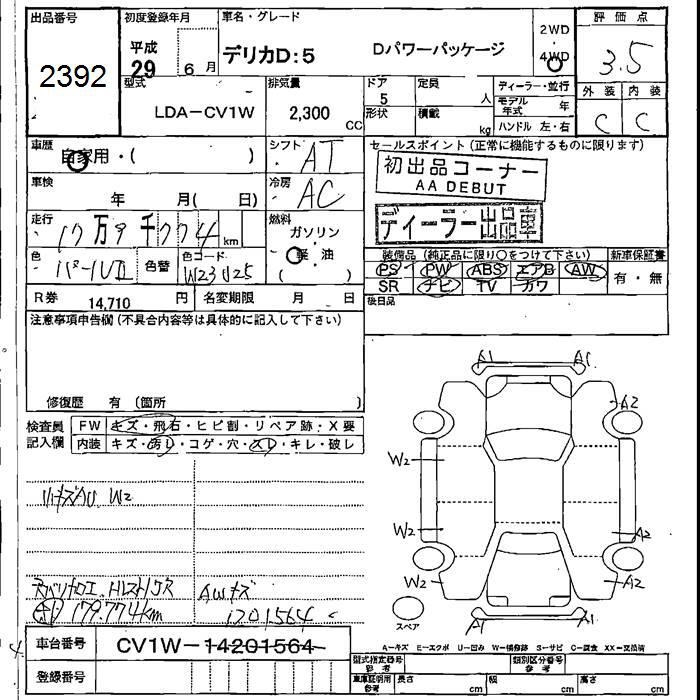 出品番号 初度登録年月 車名・グレード 2WD 評価点
2392 平成 29 6月 デリカD:5 Dパワーパッケージ 4WD 3.5
型式 排気量 ドア 定員 ディーラー・並行 外装 内装
LDA-CV1W 2,300 CC 5 人 モデル年式 年 C C
形状 積載 kg ハンドル 左・右
車歴 自家用・( ) シフト AT セールスポイント(正常に機能するものに限ります)
初出品コーナー
AA DEBUT
車検 年 月( 日) 冷房 AC
ディーラー出品車
走行 17万9千774 km 燃料 ガソリン
軽油
( )
色 パールII 色替 色コード W23 U25
装備品(純正品に限り○をつけて下さい) 新車保証書
PS PW ABS エアB AW 有・無
SR ナビ TV カワ
R券 14,710 円 名変期限 月 日 後日品
注意事項申告欄(不具合内容等は具体的に記入して下さい)
修復歴 有 (箇所 )
検査員 FW キズ・飛石・ヒビ割・リペア跡・X要
記入欄 内装 キズ・汚レ・コゲ・穴・スレ・キレ・破レ
A1 A1
A2
W2
W2 A2
W2 A2
A1 A1
スペア
W2
AWキズ
179.774km 1201564
A-キズ E-エクボ U-凹み W-補修跡 S-サビ C-腐食 XX-交換済
車台番号 CV1W-14201564
登録番号
型式指定番号 参考 類別区分番号 参考
車庫証明用 参考 長さ cm 幅 cm 高さ cm